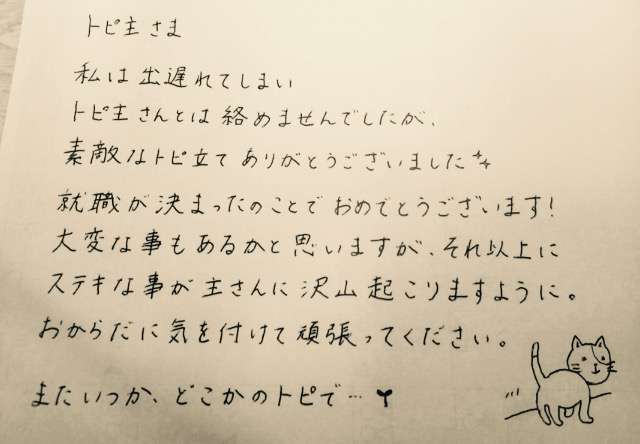 トピ主さま
私は出遅れてしまい
トピ主さんとは絡めませんでしたが、
素敵なトピ立てありがとうございました
就職が決まったのことでおめでとうございます!
大変な事もあるかと思いますが、それ以上に
ステキな事が主さんに沢山起こりますように。
おからだに気を付けて頑張ってください。
またいつか、どこかのトピで…